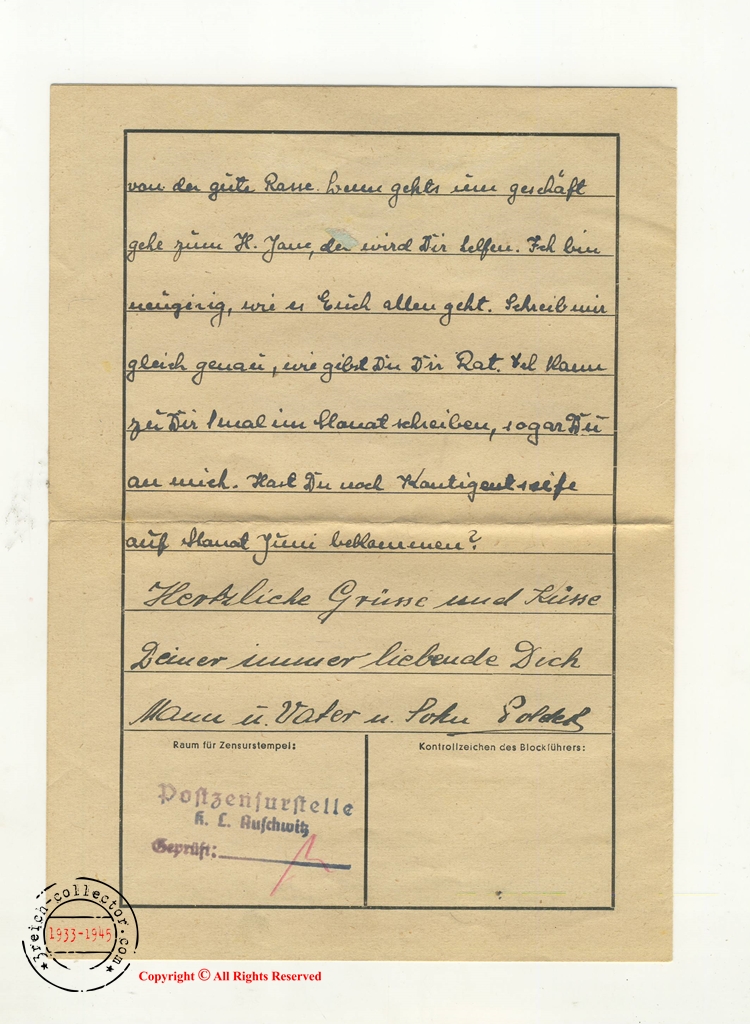 von der gute Rasse. Wenn gehts um geschäft
gehe zum H. Jane, der wird Dir helfen. Ich bin
neugirig, wie es Euch allen geht. Schreib mir
gleich genau, wie gibst Du Dir Rat. Ich kann
zu Dir 1 mal im Monat schreiben, sogar Du
an mich. Hast Du noch Kontigentseife
auf Monat Juni bekkommen?
Hertzliche Grüsse und Küsse
Deiner immer liebende Dich
Mann u. Vater u. Sohn
Raum für Zensurstempel:
Kontrollzeichen des Blockführers:
Postzensurstelle
K. L. Auschwitz
Geprüft:
3reich-collector.com
1933-1945
Copyright © All Rights Reserved